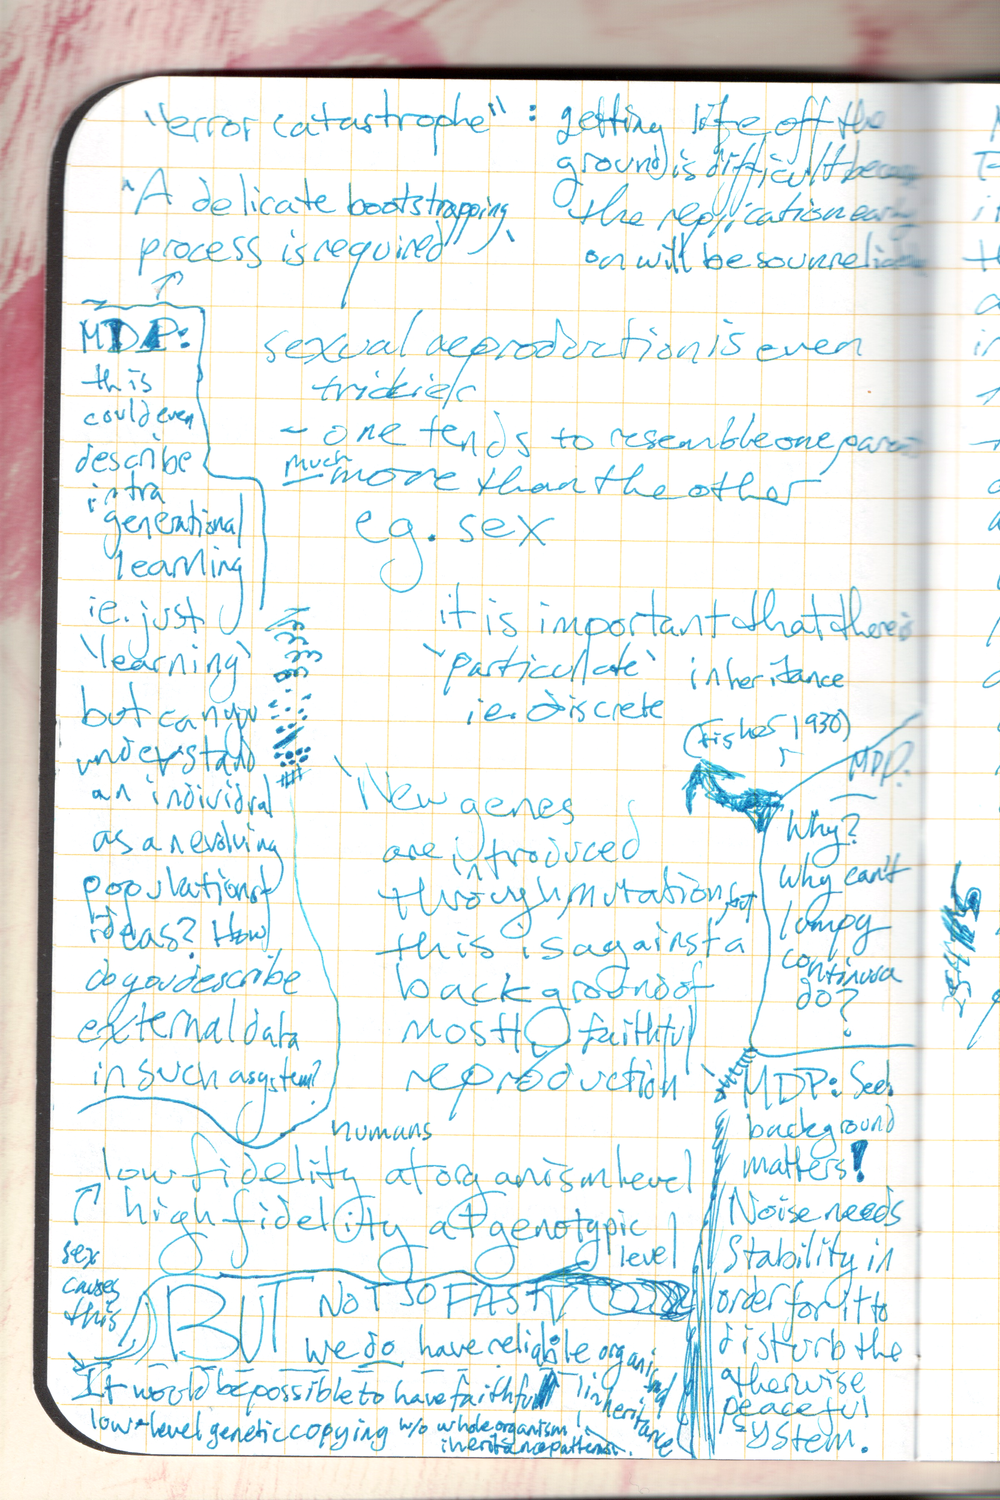 "error catastrophe" : getting life off the
ground is difficult because
the replication early
on will be so unreliable
"A delicate bootstrapping
process is required"
MDP:
this
could even
describe
intra
generational
learning
ie. just
'learning'
but can you
understand
an individual
as an evolving
population of
ideas? How
do you describe
external data
in such a system?
sexual reproduction is even
trickier
- one tends to resemble one parent
much
more than the other
eg. sex
it is important that there is
'particulate' inheritance
ie. discrete
(Fisher 1930)
MDP:
Why?
Why can't
lumpy
continua
do?
'New genes
are introduced
through mutation, but
this is against a
background of
mostly faithful
reproduction'
MDP: See!
background
matters!
Noise needs
Stability in
order for it to
disturb the
otherwise
peaceful
system.
humans
low fidelity at organism level
high fidelity at genotypic
level
sex
causes
this
BUT NOT SO FAST
we do have reliable organism
inheritance
It would be possible to have faithful
low-level genetic copying w/o whole organism
inheritance patterns.